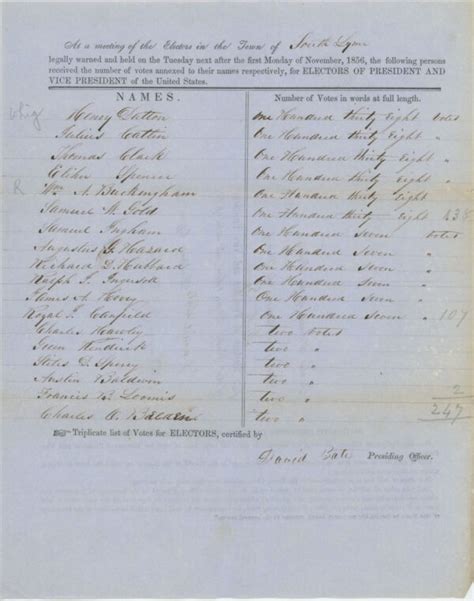 At a meeting of the Electors in the Town of South Lyme
legally warned and held on the Tuesday next after the first Monday of November, 1856, the following persons
received the number of votes annexed to their names respectively, for ELECTORS OF PRESIDENT AND
VICE PRESIDENT of the United States.
NAMES. Number of Votes in words at full length.
Whig Henry Dutton One Hundred thirty Eight Votes
Julius Catlin One Hundred thirty Eight "
Thomas Clark One Hundred thirty Eight "
Elihu Spencer One Hundred thirty Eight "
R Wm A. Buckingham One Hundred thirty Eight "
Samuel M. Gold One Hundred thirty Eight 138
Samuel Ingham One Hundred Seven Votes
Augustus G. Hazard One Hundred Seven "
Richard D. Hubbard One Hundred Seven "
Ralph I. Ingersoll One Hundred Seven "
James A. Hovey One Hundred Seven "
Royal I. Canfield One Hundred Seven " 107
Charles Hawley two Votes
Green Kendrick two "
Stiles D. Sperry two "
Austin Baldwin two "
Francis B. Loomis two " 2
Charles A. two " 247
Triplicate list of Votes for ELECTORS, certified by
David Presiding Officer.